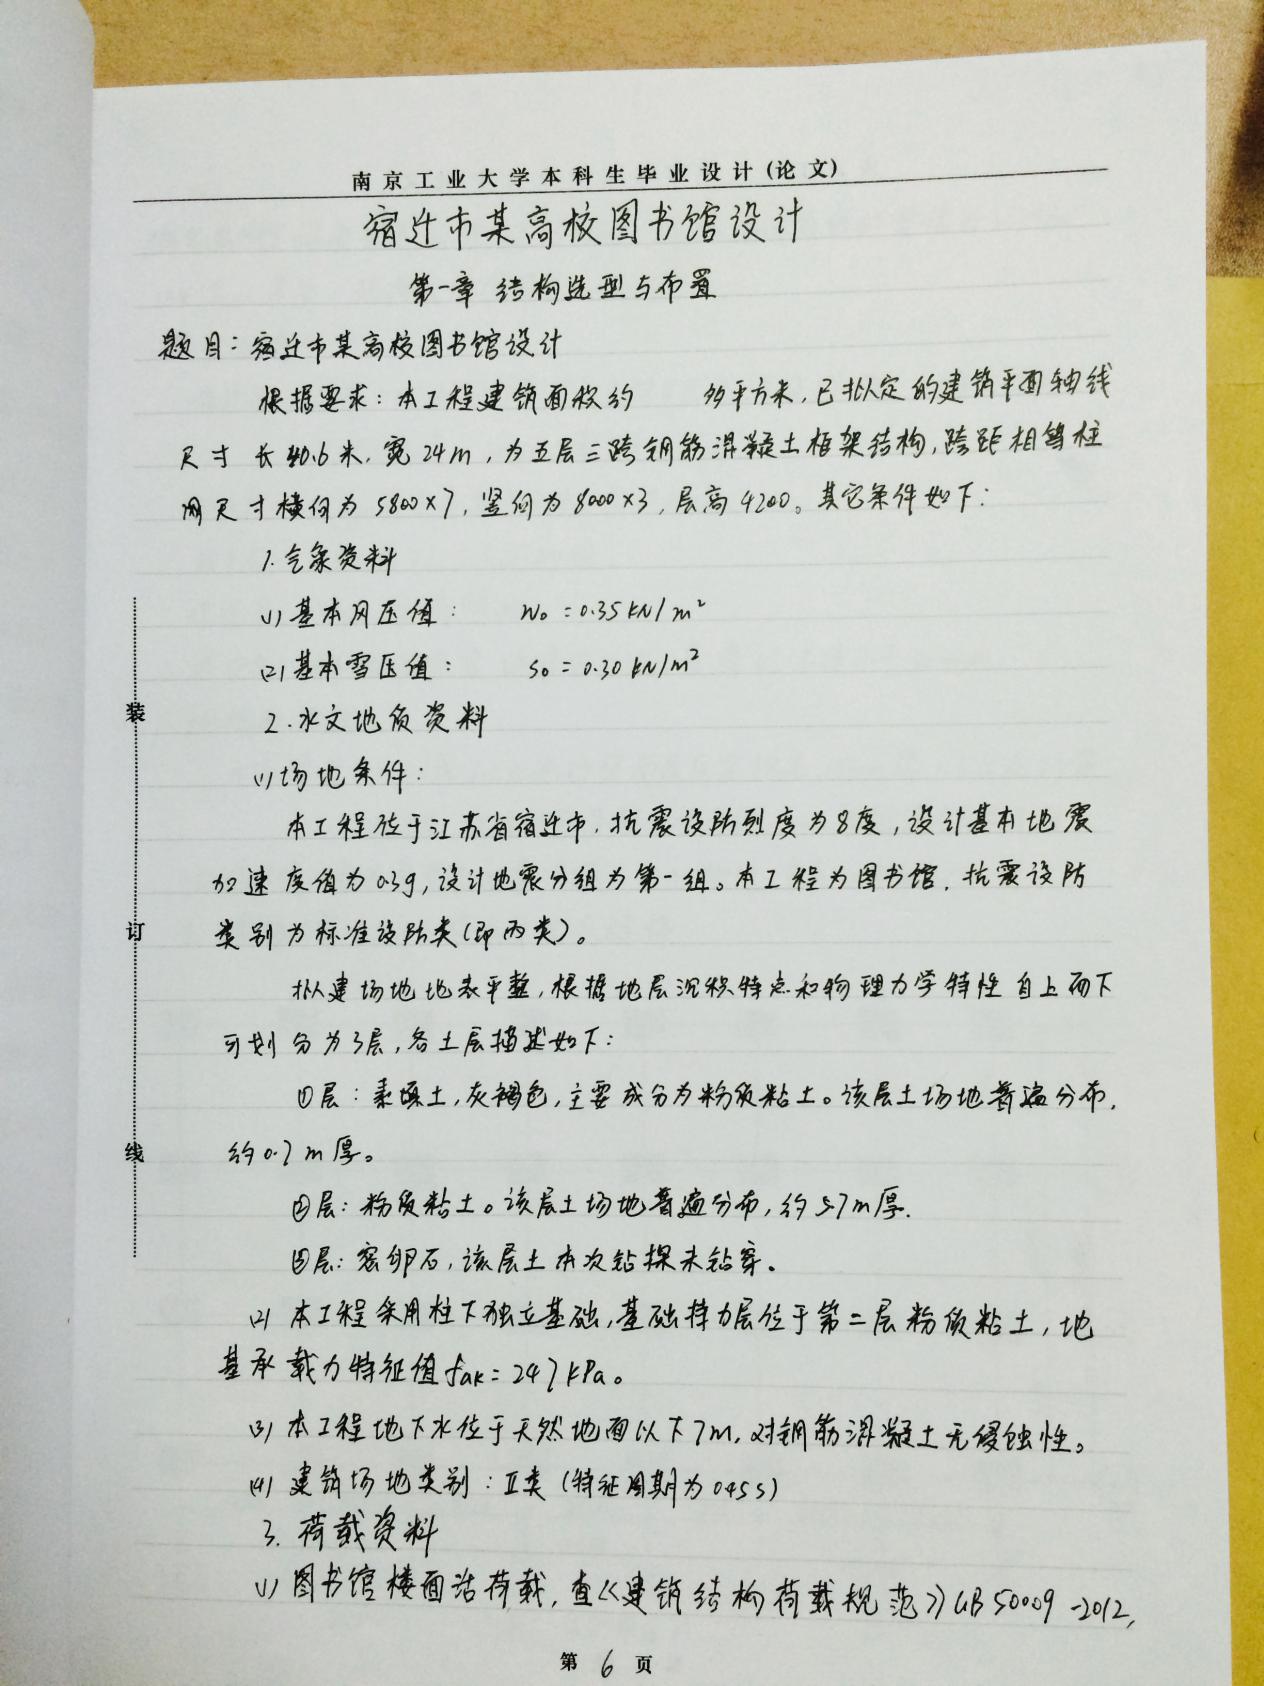 南京工业大学本科生毕业设计(论文)
宿迁市某高校图书馆设计
第一章 结构选型与布置
题目：宿迁市某高校图书馆设计
根据要求：本工程建筑面积约 平方米，已拟定的建筑平面轴线
尺寸 长40.6米，宽24m，为五层三跨钢筋混凝土框架结构，跨距相等柱
网尺寸横向为 5800×7，竖向为8000×3，层高4200。其它条件如下：
1.气象资料
(1)基本风压值： W₀=0.35KN/m²
(2)基本雪压值： S₀=0.30KN/m²
2.水文地质资料
(1)场地条件：
本工程位于江苏省宿迁市，抗震设防烈度为8度，设计基本地震
加速度值为0.3g，设计地震分组为第一组。本工程为图书馆，抗震设防
类别为标准设防类(即丙类)。
拟建场地地表平整，根据地层沉积特点和物理力学特性自上而下
可划分为3层，各土层描述如下：
①层：素填土，灰褐色，主要成分为粉质粘土。该层土场地普遍分布，
约0.7m厚。
②层：粉质粘土。该层土场地普遍分布，约5.7m厚。
③层：密卵石，该层土本次钻探未钻穿。
(2)本工程采用柱下独立基础，基础持力层位于第二层粉质粘土，地
基承载力特征值fak=247kPa。
(3)本工程地下水位于天然地面以下7m，对钢筋混凝土无侵蚀性。
(4)建筑场地类别：Ⅱ类(特征周期为0.45s)
3.荷载资料
(1)图书馆楼面活荷载，查《建筑结构荷载规范》GB50009-2012，
装
订
线
第 6 页